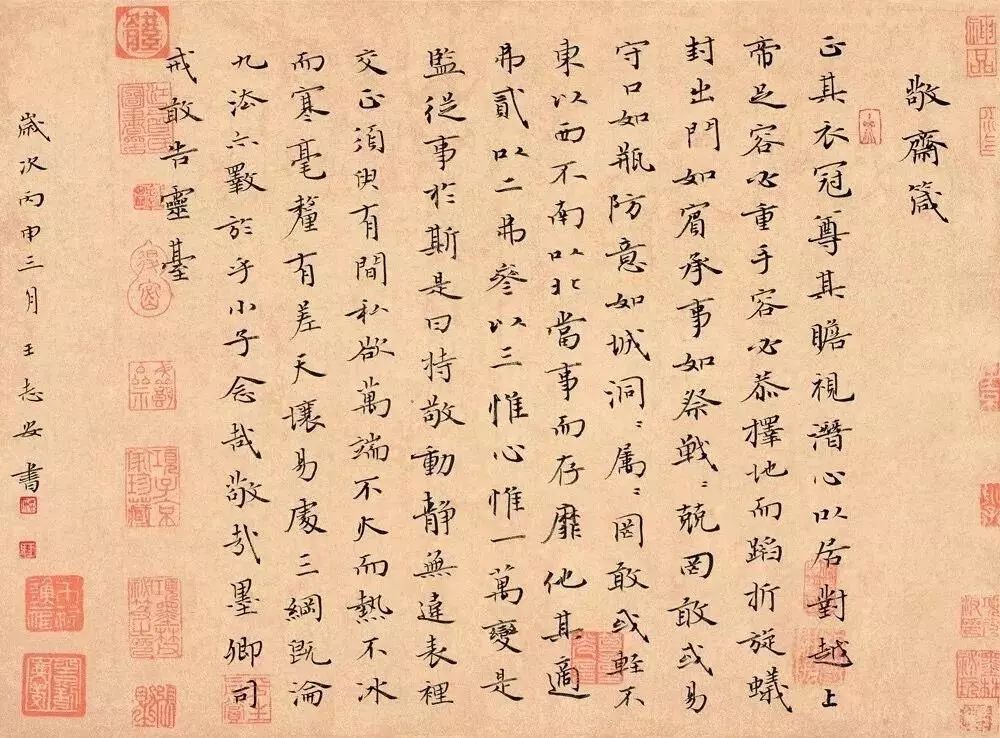 敬齋箴
正其衣冠尊其瞻視潛心以居對越上
帝足容必重手容必恭擇地而蹈折旋蟻
封出門如賓承事如祭戰〻兢罔敢或易
守口如瓶防意如城洞〻属〻罔敢或輕不
東以西不南以北當事而存靡他其適
弗貳以二弗參以三惟心惟一萬變是
監從事於斯是曰持敬動靜無違表裡
交正須臾有間私欲萬端不火而熱不冰
而寒毫釐有差天壤易處三綱既淪
九法亦斁於乎小子念哉敬哉墨卿司
戒敢告靈臺
歲次丙申三月王志安書
神品
項子京家珍藏